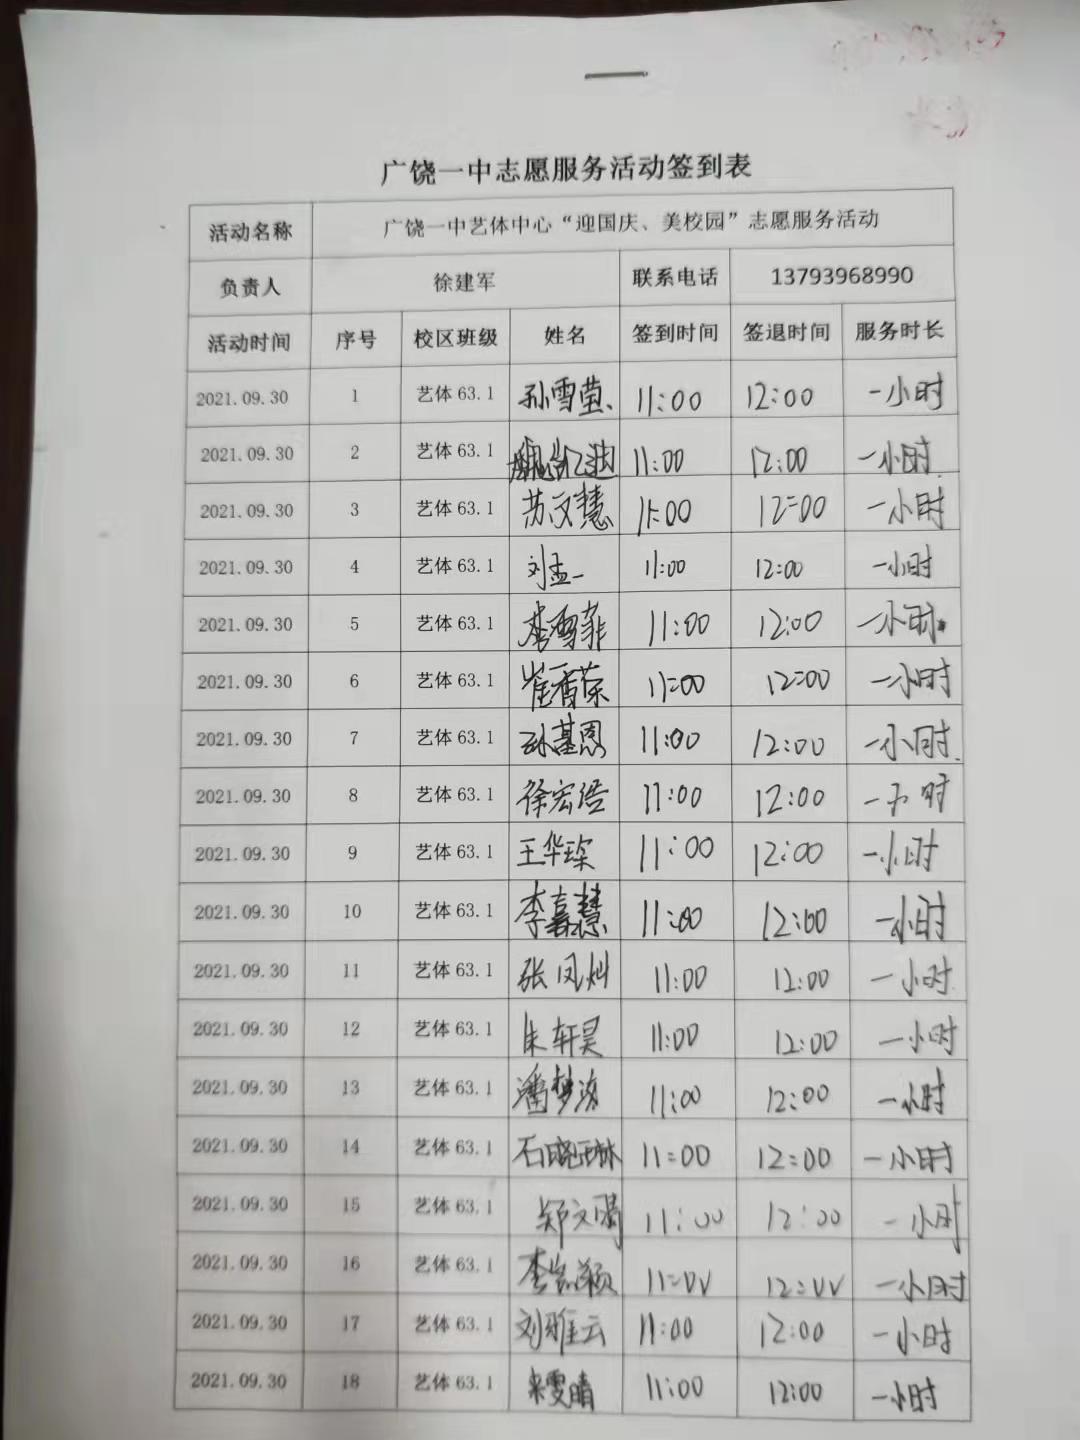 广饶一中志愿服务活动签到表
活动名称 广饶一中艺体中心“迎国庆、美校园”志愿服务活动
负责人 徐建军 联系电话 13793968990
活动时间 序号 校区班级 姓名 签到时间 签退时间 服务时长
2021.09.30 1 艺体 63.1 孙雪莹 11:00 12:00 一小时
2021.09.30 2 艺体 63.1 11:00 12:00 一小时
2021.09.30 3 艺体 63.1 苏文慧 11:00 12:00 一小时
2021.09.30 4 艺体 63.1 刘孟一 11:00 12:00 一小时
2021.09.30 5 艺体 63.1 李雪菲 11:00 12:00 一小时
2021.09.30 6 艺体 63.1 崔香荣 11:00 12:00 一小时
2021.09.30 7 艺体 63.1 孙基恩 11:00 12:00 一小时
2021.09.30 8 艺体 63.1 徐宏浩 11:00 12:00 一小时
2021.09.30 9 艺体 63.1 王华琛 11:00 12:00 一小时
2021.09.30 10 艺体 63.1 李嘉慧 11:00 12:00 一小时
2021.09.30 11 艺体 63.1 张凤灿 11:00 12:00 一小时
2021.09.30 12 艺体 63.1 朱轩昊 11:00 12:00 一小时
2021.09.30 13 艺体 63.1 11:00 12:00 一小时
2021.09.30 14 艺体 63.1 石晓琳 11:00 12:00 一小时
2021.09.30 15 艺体 63.1 11:00 12:00 一小时
2021.09.30 16 艺体 63.1 11:00 12:00 一小时
2021.09.30 17 艺体 63.1 刘雅云 11:00 12:00 一小时
2021.09.30 18 艺体 63.1 11:00 12:00 一小时